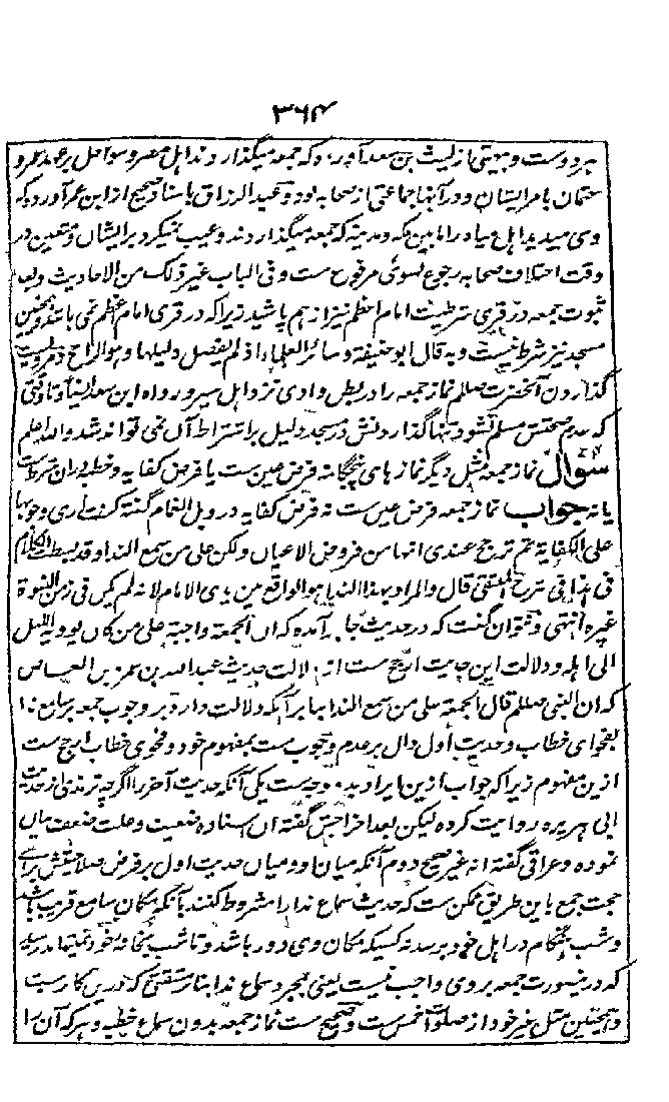 ۳۶۴
بر دوست و بیهقی از لیث بن سعد آورده که جمعه میگذاردند اهل مصر و سواحل بر عهد عمر و
عثمان بامر ایشان و در آنها جماعتی از صحابه بود و عبد الرزاق باسناد صحیح از ابن عمر آورده که
وی میدید اهل میاه را مابین مکه و مدینه که جمعه میگذاردند و عیب نمیکرد بر ایشان و متعین در
وقت اختلاف صحابه رجوع بسوی مرفوع ست و فی الباب غیر ذلک من الاحادیث و بعد
ثبوت جمعه در قری شرطیت امام اعظم نیز از هم پاشید زیرا که در قری امام اعظم نمی باشد و همچنین
مسجد نیز شرط نیست و به قال ابو حنیفة و سائر العلماء اذ لم یفصل دلیلها و هو الراجح و مرویست
گذاردن آنحضرت صلعم نماز جمعه را در بطن وادی نزد اهل سیر و رواه ابن سعد ایضا و تا وقتی
که عدم صحتش مسلم نشود تنها گذاردنش در مسجد دلیل بر اشتراط آن نمی تواند شد و الله اعلم
سوال نماز جمعه مثل دیگر نماز های پنجگانه فرض عین ست یا فرض کفایه و خطبه دران شرط ست
یا نه جواب نماز جمعه فرض عین ست نه فرض کفایه در وبل الغمام گفته کنت اری وجوبها
علی الکفایة ثم ترجح عندی انها من فروض الاعیان ولکن علی من سمع النداء و قد بسطت الکلام
فی هذا فی شرح المنتقی قال و المراد بهذا النداء هو الواقع بین یدی الامام لانه لم یکن فی زمن النبوة
غیره انتهی و نتوان گفت که در حدیث جابر آمده که ان الجمعة واجبة علی من کان یوویه اللیل
الی اهله و دلالت این حدیث ارجح ست از دلالت حدیث عبد الله بن عمرو بن العاص
که ان النبی صلعم قال الجمعة علی من سمع النداء بنا بر آنکه دلالت دارد بر وجوب جمعه بر سامع ندا
بفحوای خطاب و حدیث اول دال بر عدم وجوب ست بمفهوم خود و فحوی خطاب ارجح ست
ازین مفهوم زیرا که جواب ازین ایراد بدو وجه ست یکی آنکه حدیث آخر را اگرچه ترمذی از حدیث
ابی هریره روایت کرده لیکن بعد اخراجش گفته ان اسناده ضعیف و علت ضعف بیان
نموده و عراقی گفته انه غیر صحیح دوم آنکه میان او و میان حدیث اول بر فرض صلاحیتش برای
حجت جمع باین طریق ممکن ست که حدیث سماع ندا را مشروط کنند بآنکه مکان سامع قریب باشد
و شب هنگام در اهل خود برسد نه کسیکه مکان وی دور باشد و تا شب بخانه خود نمیتواند رسید
که درینصورت جمعه بر وی واجب نیست یعنی بمجرد سماع ندا
و همچنین مثل غیر خود از صلوات خمس ست و صحیح ست نماز جمعه بدون سماع خطبه و هر که آن را